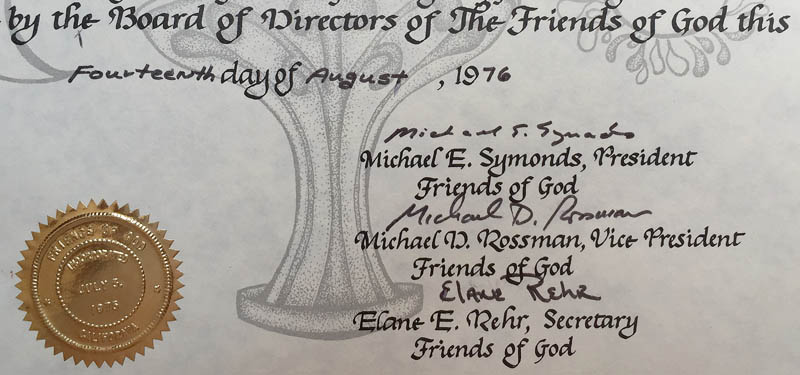 by the Board of Directors of The Friends of God this
Fourteenth day of August, 1976
Michael E. Symonds
Michael E. Symonds, President
Friends of God
Michael D. Rossman
Michael D. Rossman, Vice President
Friends of God
Elane Rehr
Elane E. Rehr, Secretary
Friends of God
FRIENDS OF GOD
INCORPORATED
JULY 3,
1975
CALIFORNIA